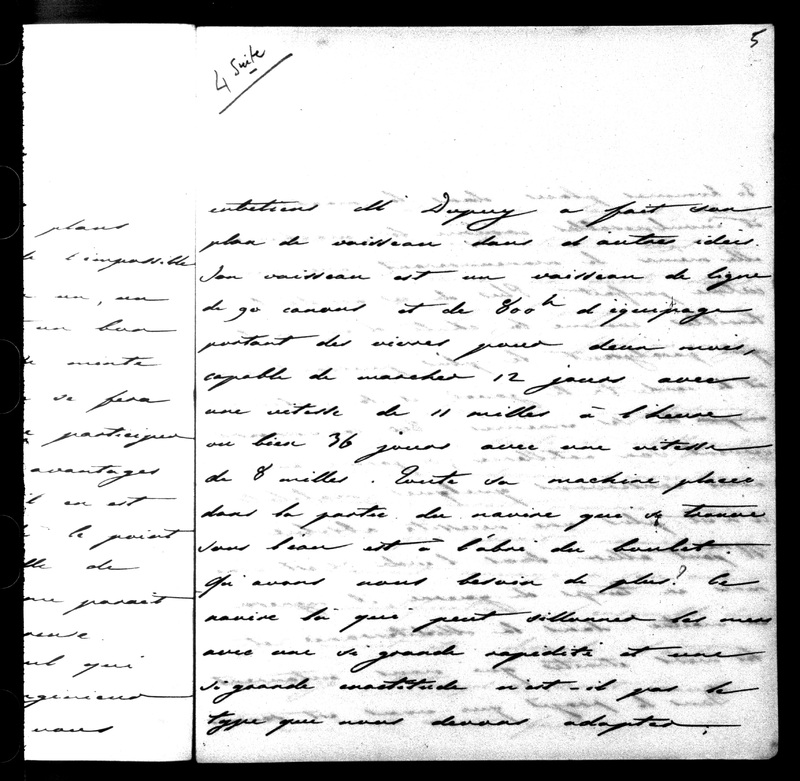 4 Suite
5
plans
l'impossible
un, un
un bon
mente
se fera
participer
avantages
il en est
le point
lle de
paraît
reuse.
qui
ngénieur
vous
entretiens M Dupuy a fait son
plan de vaisseau dans d'autres idées.
Son vaisseau est un vaisseau de ligne
de 90 canons et de 800h d'équipage
portant des vivres pour deux mois,
capable de marcher 12 jours avec
une vitesse de 11 milles à l'heure
ou bien 36 jours avec une vitesse
de 8 milles. Toute sa machine placée
dans la partie du navire qui se trouve
sous l'eau est à l'abri du boulet.
Qu'avons nous besoin de plus? Ce
navire là qui peut sillonner les mers
avec une si grande rapidité et une
si grande exactitude n'est-il pas le
type que nous devons adopter;